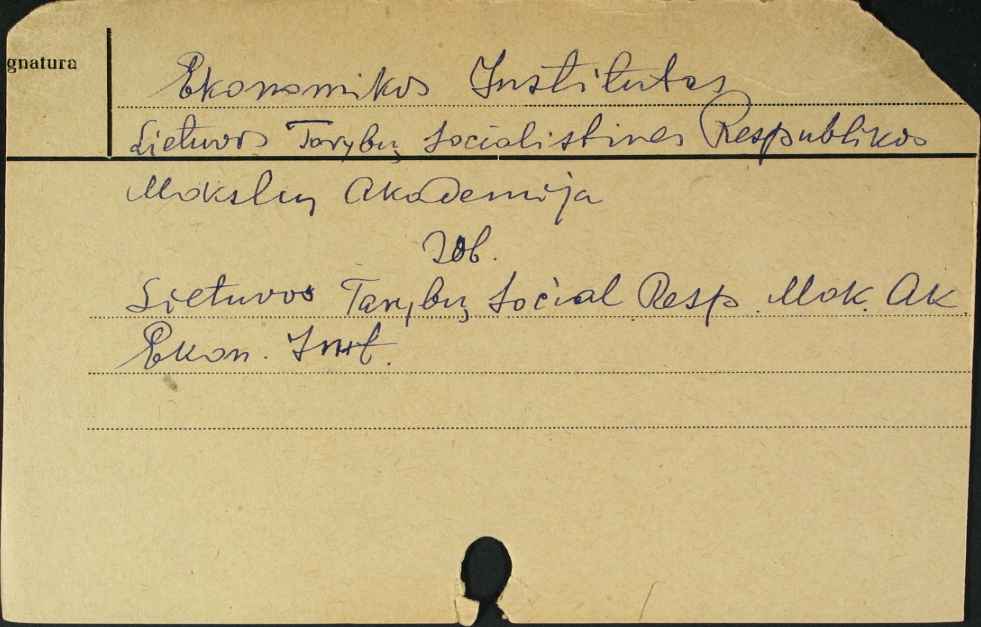 gnatura
Ekonomikos Institutas
Lietuvos Tarybų Socialistines Respublikos
Mokslų Akademija
Zob.
Lietuvos Tarybų Social Resp. Mok. Ak.
Ekon. Inst.